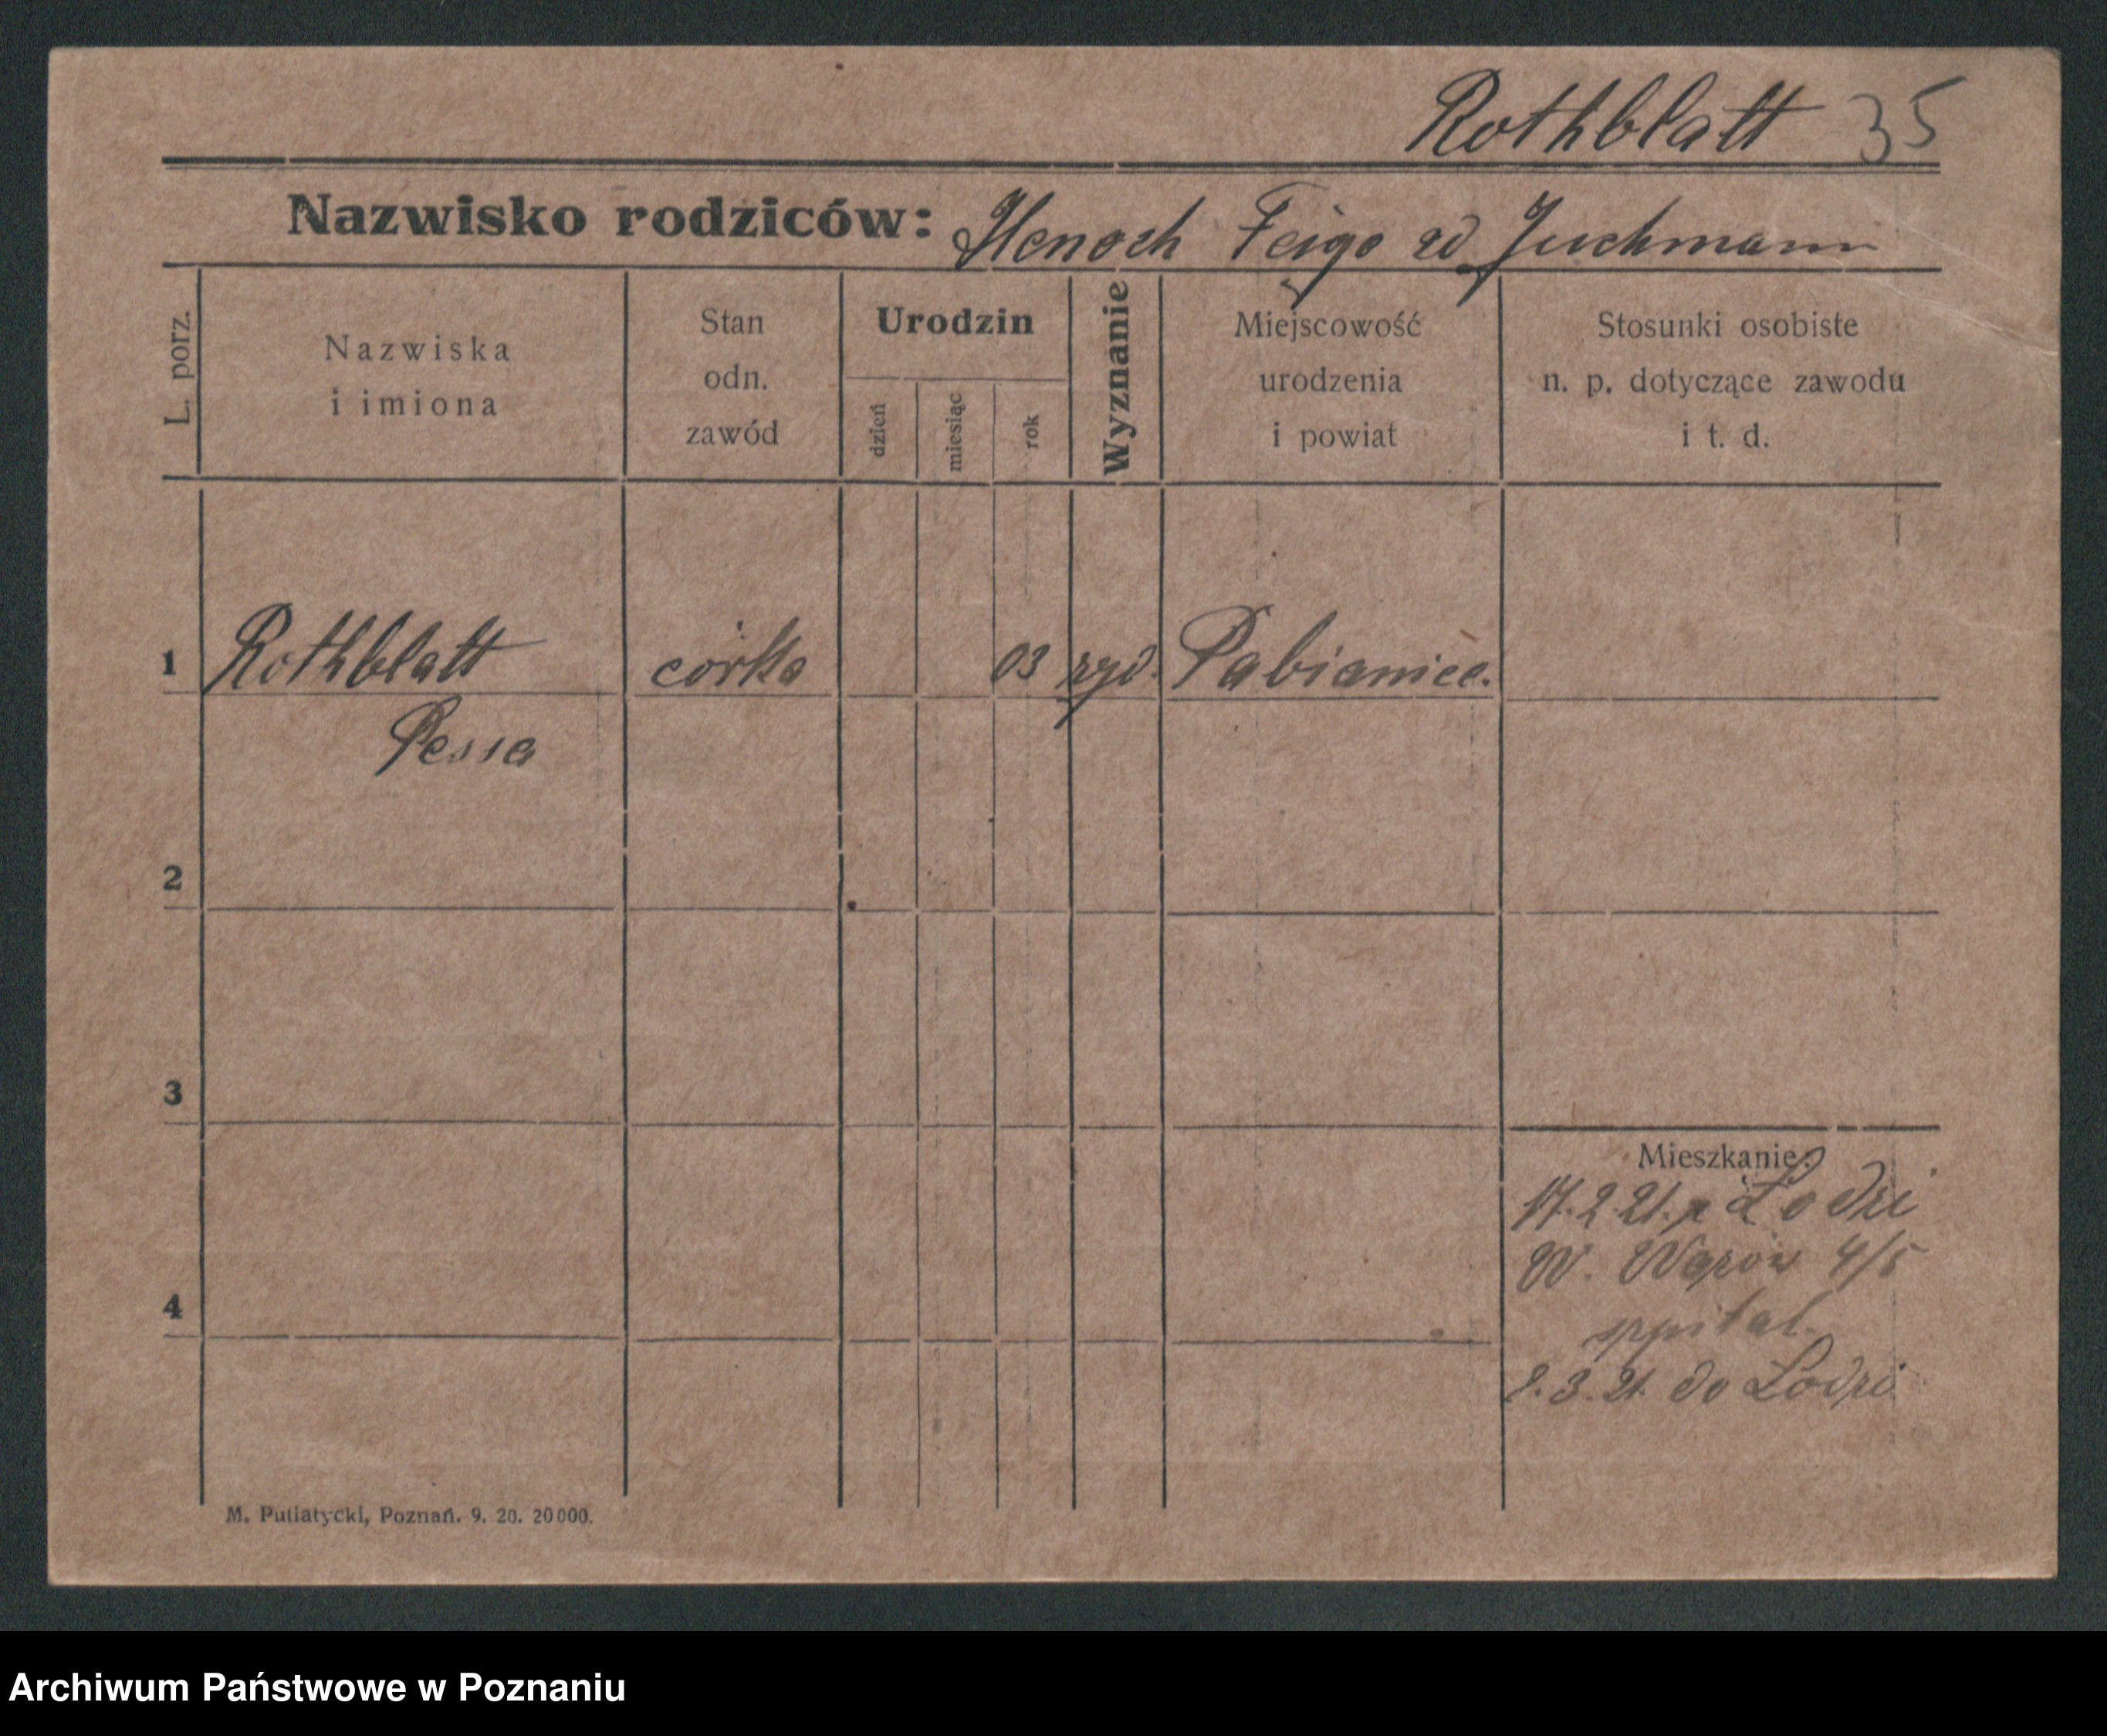 Rothblatt 35
Nazwisko rodziców: Henoch Feigo zd Juchmann
L. porz.
Nazwiska
i imiona
Stan
odn.
zawód
Urodzin
dzień
miesiąc
rok
Wyznanie
Miejscowość
urodzenia
i powiat
Stosunki osobiste
n. p. dotyczące zawodu
i t. d.
1 Rothblatt córka 03 żyd. Pabianice.
Pessa
2
3
4
Mieszkanie:
17.2.21. z Łodzi
W. 4/5
szpital.
8.3.21. do Łodzi
M. Putiatycki, Poznań. 9. 20. 20000.
Archiwum Państwowe w Poznaniu